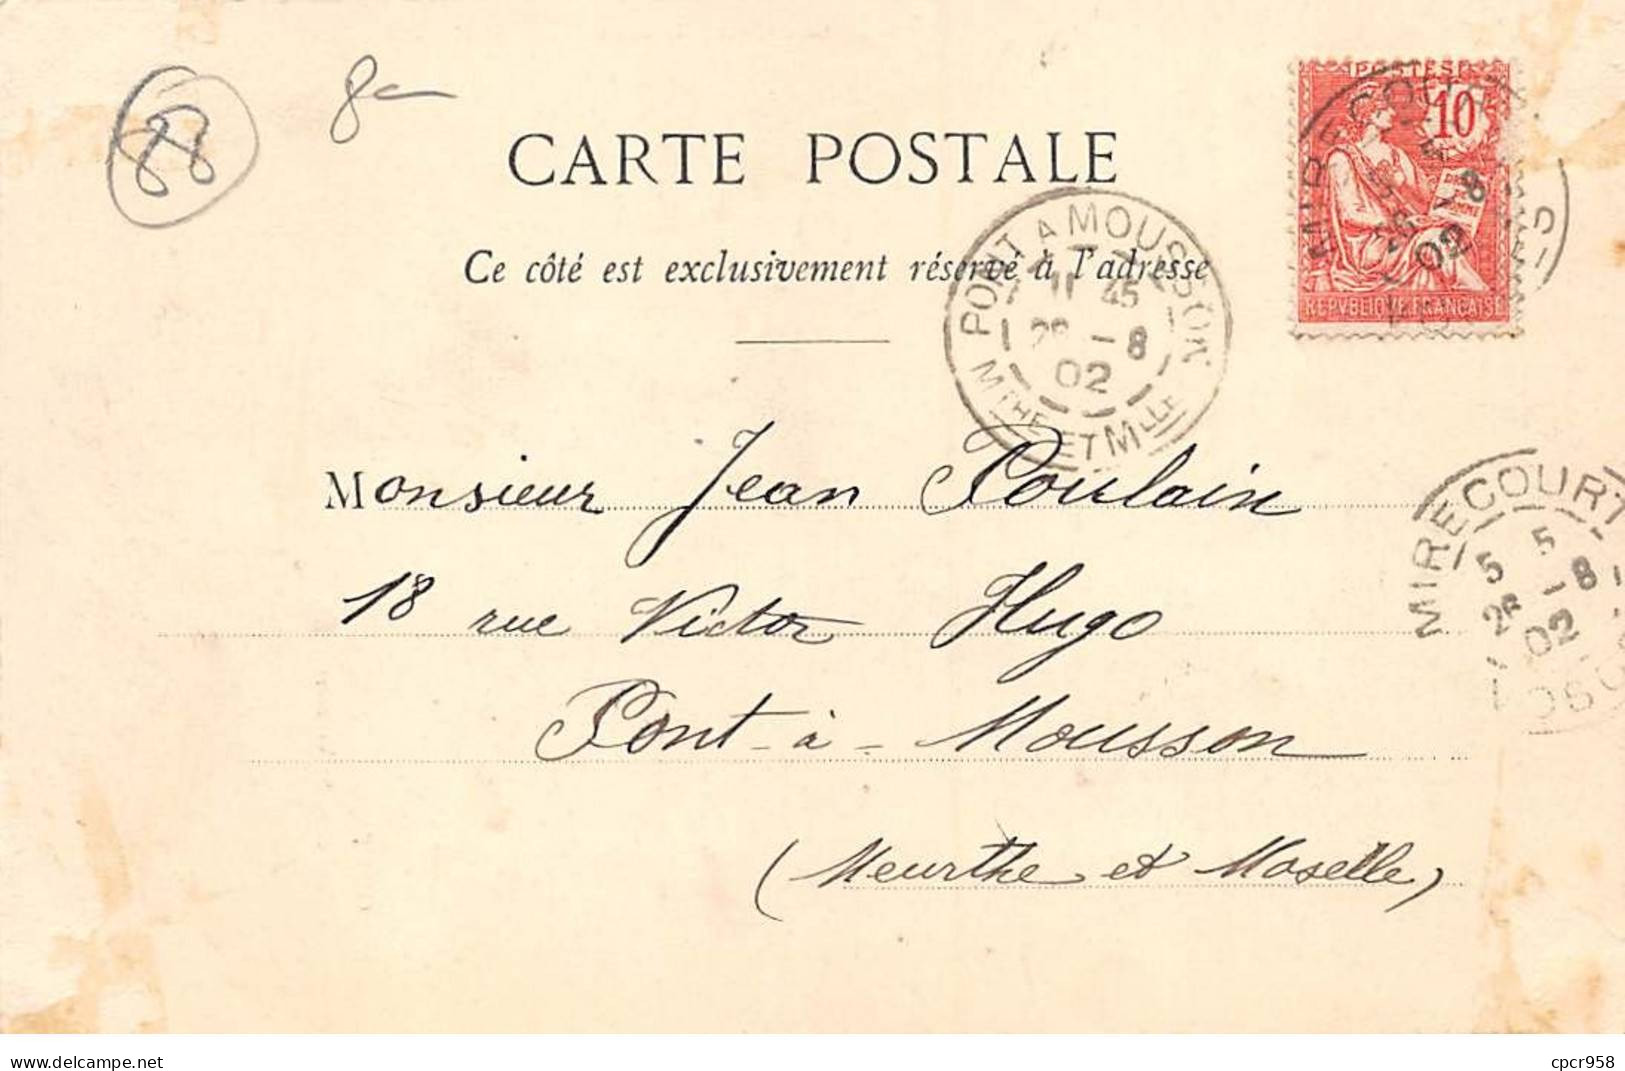 88
8
CARTE POSTALE
Ce côté est exclusivement réservé à l'adresse
POSTES
10
REPVBLIQVE FRANÇAISE
MIRECOURT
5 5
26 - 8
02
VOSGES
PONT A MOUSSON
11 45
26 - 8
02
MTHE ET MLLE
Monsieur Jean Poulain
18 rue Victor Hugo
Pont-à-Mousson
(Meurthe et Moselle)
MIRECOURT
5 5
26 - 8
02
VOSGES
www.delcampe.net
cpcr958